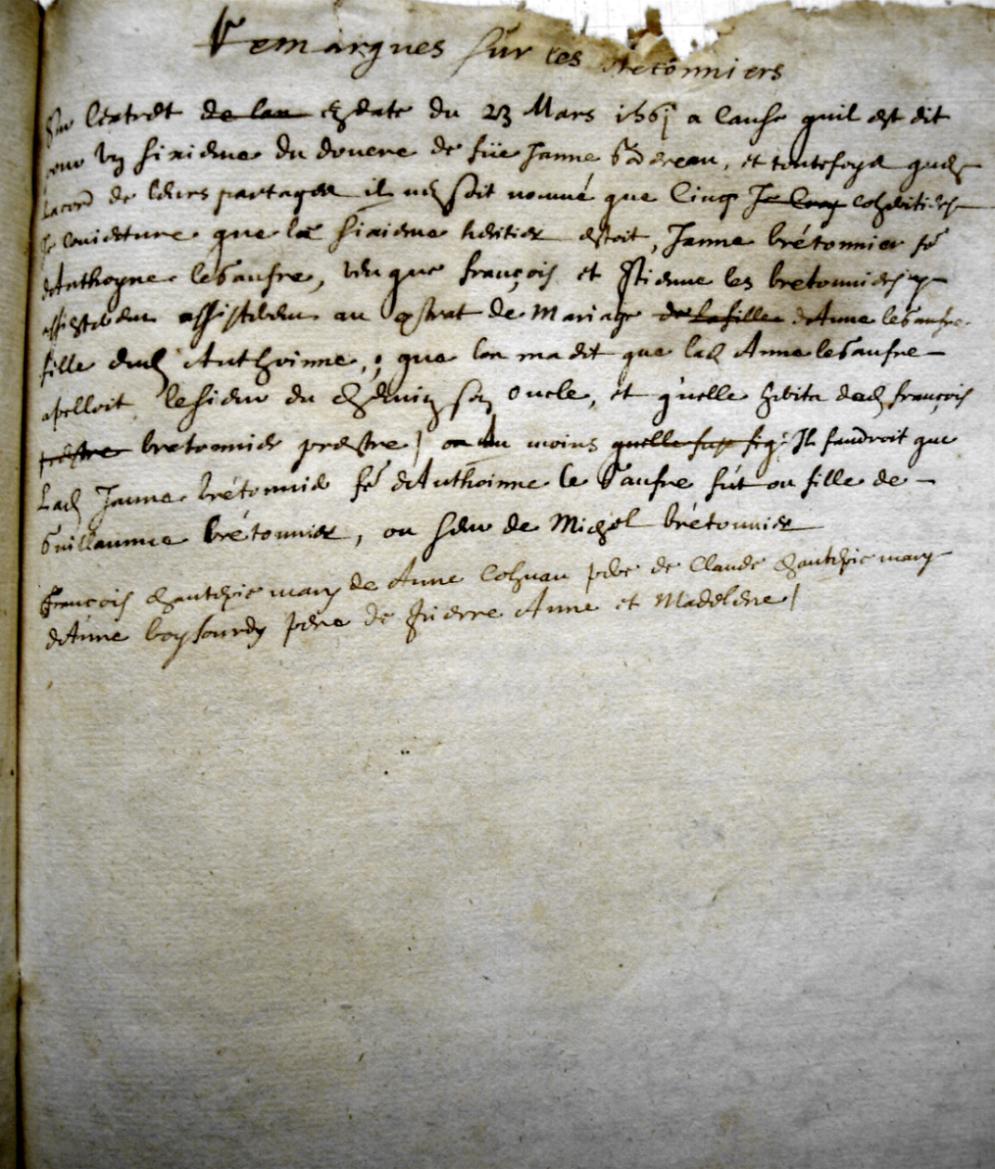 Remarques sur les Bretonniers
Sur lextret de lan en date du 23 Mars 1561 a cause quil est dit
pour un sixieme du douere de füe Janne Bodereau, et toutefoys quen
lacord de leurs partages il nen soit nommé que cinq Je coheritiers
Je coniecture que le sixieme heritier estoit, Janne brétonnier fe
dAnthoyne lebaufre, veu que françois et Estienne les bretonniers
assisterent au contrat de Mariage de la fille dAnne lebaufre
fille dud Anthoinne, ; que lon ma dit que lad Anne lebaufre
apelloit le sieur du son oncle, et quelle herita dud françois
prestre bretonnier prestre / ou du moins quelle fut Il faudroit que
Lad Janne brétonnier fe dAnthoinne le baufre fút ou fille de
Guillaumme brétonnier, ou seur de Michel brétonnier
françois chantepie mary de Anne Cohuau pere de Claude chantepie mary
dAnne boysourdy pere de Pierre Anne et Madelene /